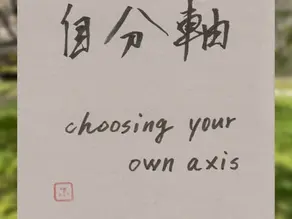 自分軸
choosing your
own axis